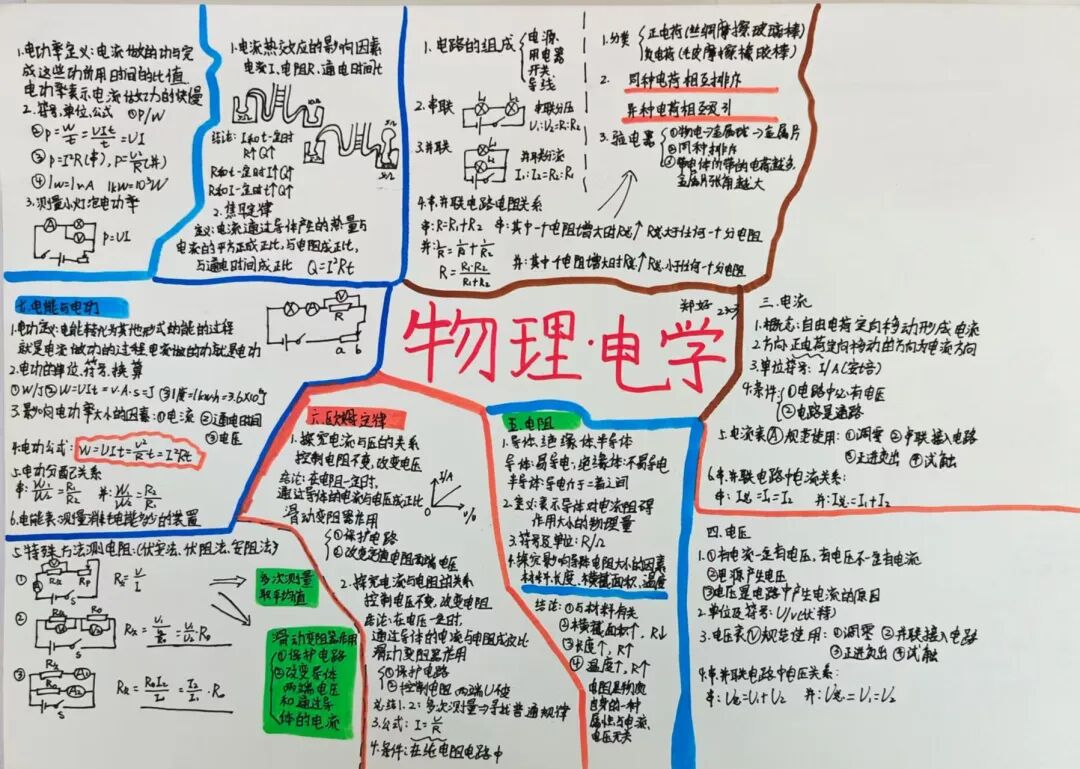 物理·电学
郑好
1.电功率定义:电流做的功与完
成这些功所用时间的比值.
电功率表示电流做功的快慢
2.符号,单位,公式 ①P/W
②P=W/t=UIt/t=UI
③P=I²R(串),P=U²/R(并)
④1W=1VA 1kW=10³W
3.测量小灯泡电功率
P=UI
1.电流热效应的影响因素
电流I、电阻R、通电时间t
结论:I和t一定时
R↑Q↑
R和t一定时I↑Q↑
R和I一定时t↑Q↑
2.焦耳定律
定义:电流通过导体产生的热量与
电流的平方成正比,与电阻成正比,
与通电时间成正比 Q=I²Rt
1.电路的组成
电源、
用电器
开关、
导线
2.串联
串联分压
U₁:U₂=R₁:R₂
3.并联
并联分流
I₁:I₂=R₂:R₁
4.串并联电路电阻关系
串:R=R₁+R₂ 串:其中一个电阻增大时R总↑ R总大于任何一个分电阻
并:1/R=1/R₁+1/R₂
R=R₁·R₂/R₁+R₂
并:其中一个电阻增大时R总↑ R总小于任何一个分电阻
1.分类
正电荷(丝绸摩擦玻璃棒)
负电荷(毛皮摩擦橡胶棒)
2. 同种电荷相互排斥
异种电荷相互吸引
3.验电器
①物电→金属球→金属片
②同种排斥
③带电体所带的电荷越多,
金属片张角越大
三.电流
1.概念:自由电荷定向移动形成电流
2.方向:正电荷定向移动的方向为电流方向
3.单位符号:I/A(安培)
4.条件:①电路中必有电压
②电路是通路
5.电流表Ⓐ规范使用:①调零 ②串联接入电路
③正进负出 ④试触
6.串并联电路中电流关系:
串:I总=I₁=I₂ 并:I总=I₁+I₂
四.电压
1.①有电流一定有电压,有电压不一定有电流
②电源产生电压
③电压是电路中产生电流的原因
2.单位及符号:U/V(伏特)
3.电压表Ⓥ规范使用:①调零 ②并联接入电路
③正进负出 ④试触
4.串并联电路中电压关系:
串:U总=U₁+U₂ 并:U总=U₁=U₂
五.电阻
1.导体、绝缘体、半导体
导体:易导电;绝缘体:不易导电
半导体:导电介于二者之间
2.定义:表示导体对电流阻碍
作用大小的物理量
3.符号及单位:R/Ω
4.探究影响导体电阻大小的因素
材料、长度、横截面积、温度
结论:①与材料有关
②横截面积↑,R↓
③长度↑,R↑
④温度↑,R↑
电阻是物质
自身的一种
属性与电流、
电压无关
六.欧姆定律
1.探究电流与电压的关系
控制电阻不变,改变电压
结论:在电阻一定时,
通过导体的电流与电压成正比
I/A
O
U/V
滑动变阻器作用
①保护电路
②改变定值电阻两端电压
2.探究电流与电阻的关系
控制电压不变,改变电阻
结论:在电压一定时,
通过导体的电流与电阻成反比
滑动变阻器作用
①保护电路
②控制电阻两端U不变
总结1.2:多次测量⇒寻找普遍规律
3.公式:I=U/R
4.条件:在纯电阻电路中
七.电能与电功
1.电功定义:电能转化为其他形式的能的过程
就是电流做功的过程,电流做的功就是电功
2.电功的单位.符号.换算
①W/J ②W=UIt=V·A·S=J ③1度=1kwh=3.6×10⁶J
3.影响电功率大小的因素:①电流 ②通电时间
③电压
4.电功公式: W=UIt=U²/R t=I²Rt
5.电功分配关系
串:W₁/W₂=R₁/R₂ 并:W₁/W₂=R₂/R₁
6.电能表:测量消耗电能多少的装置
5.特殊方法测电阻:(伏安法、伏阻法、安阻法)
① Rx=U/I
② Rx=U₁/U₂/R₀=U₁/U₂·R₀
③ Rx=R₀I₂/I₁=I₂/I₁·R₀
多次测量
取平均值
滑动变阻器作用
①保护电路
②改变导体
两端电压
和通过导
体的电流